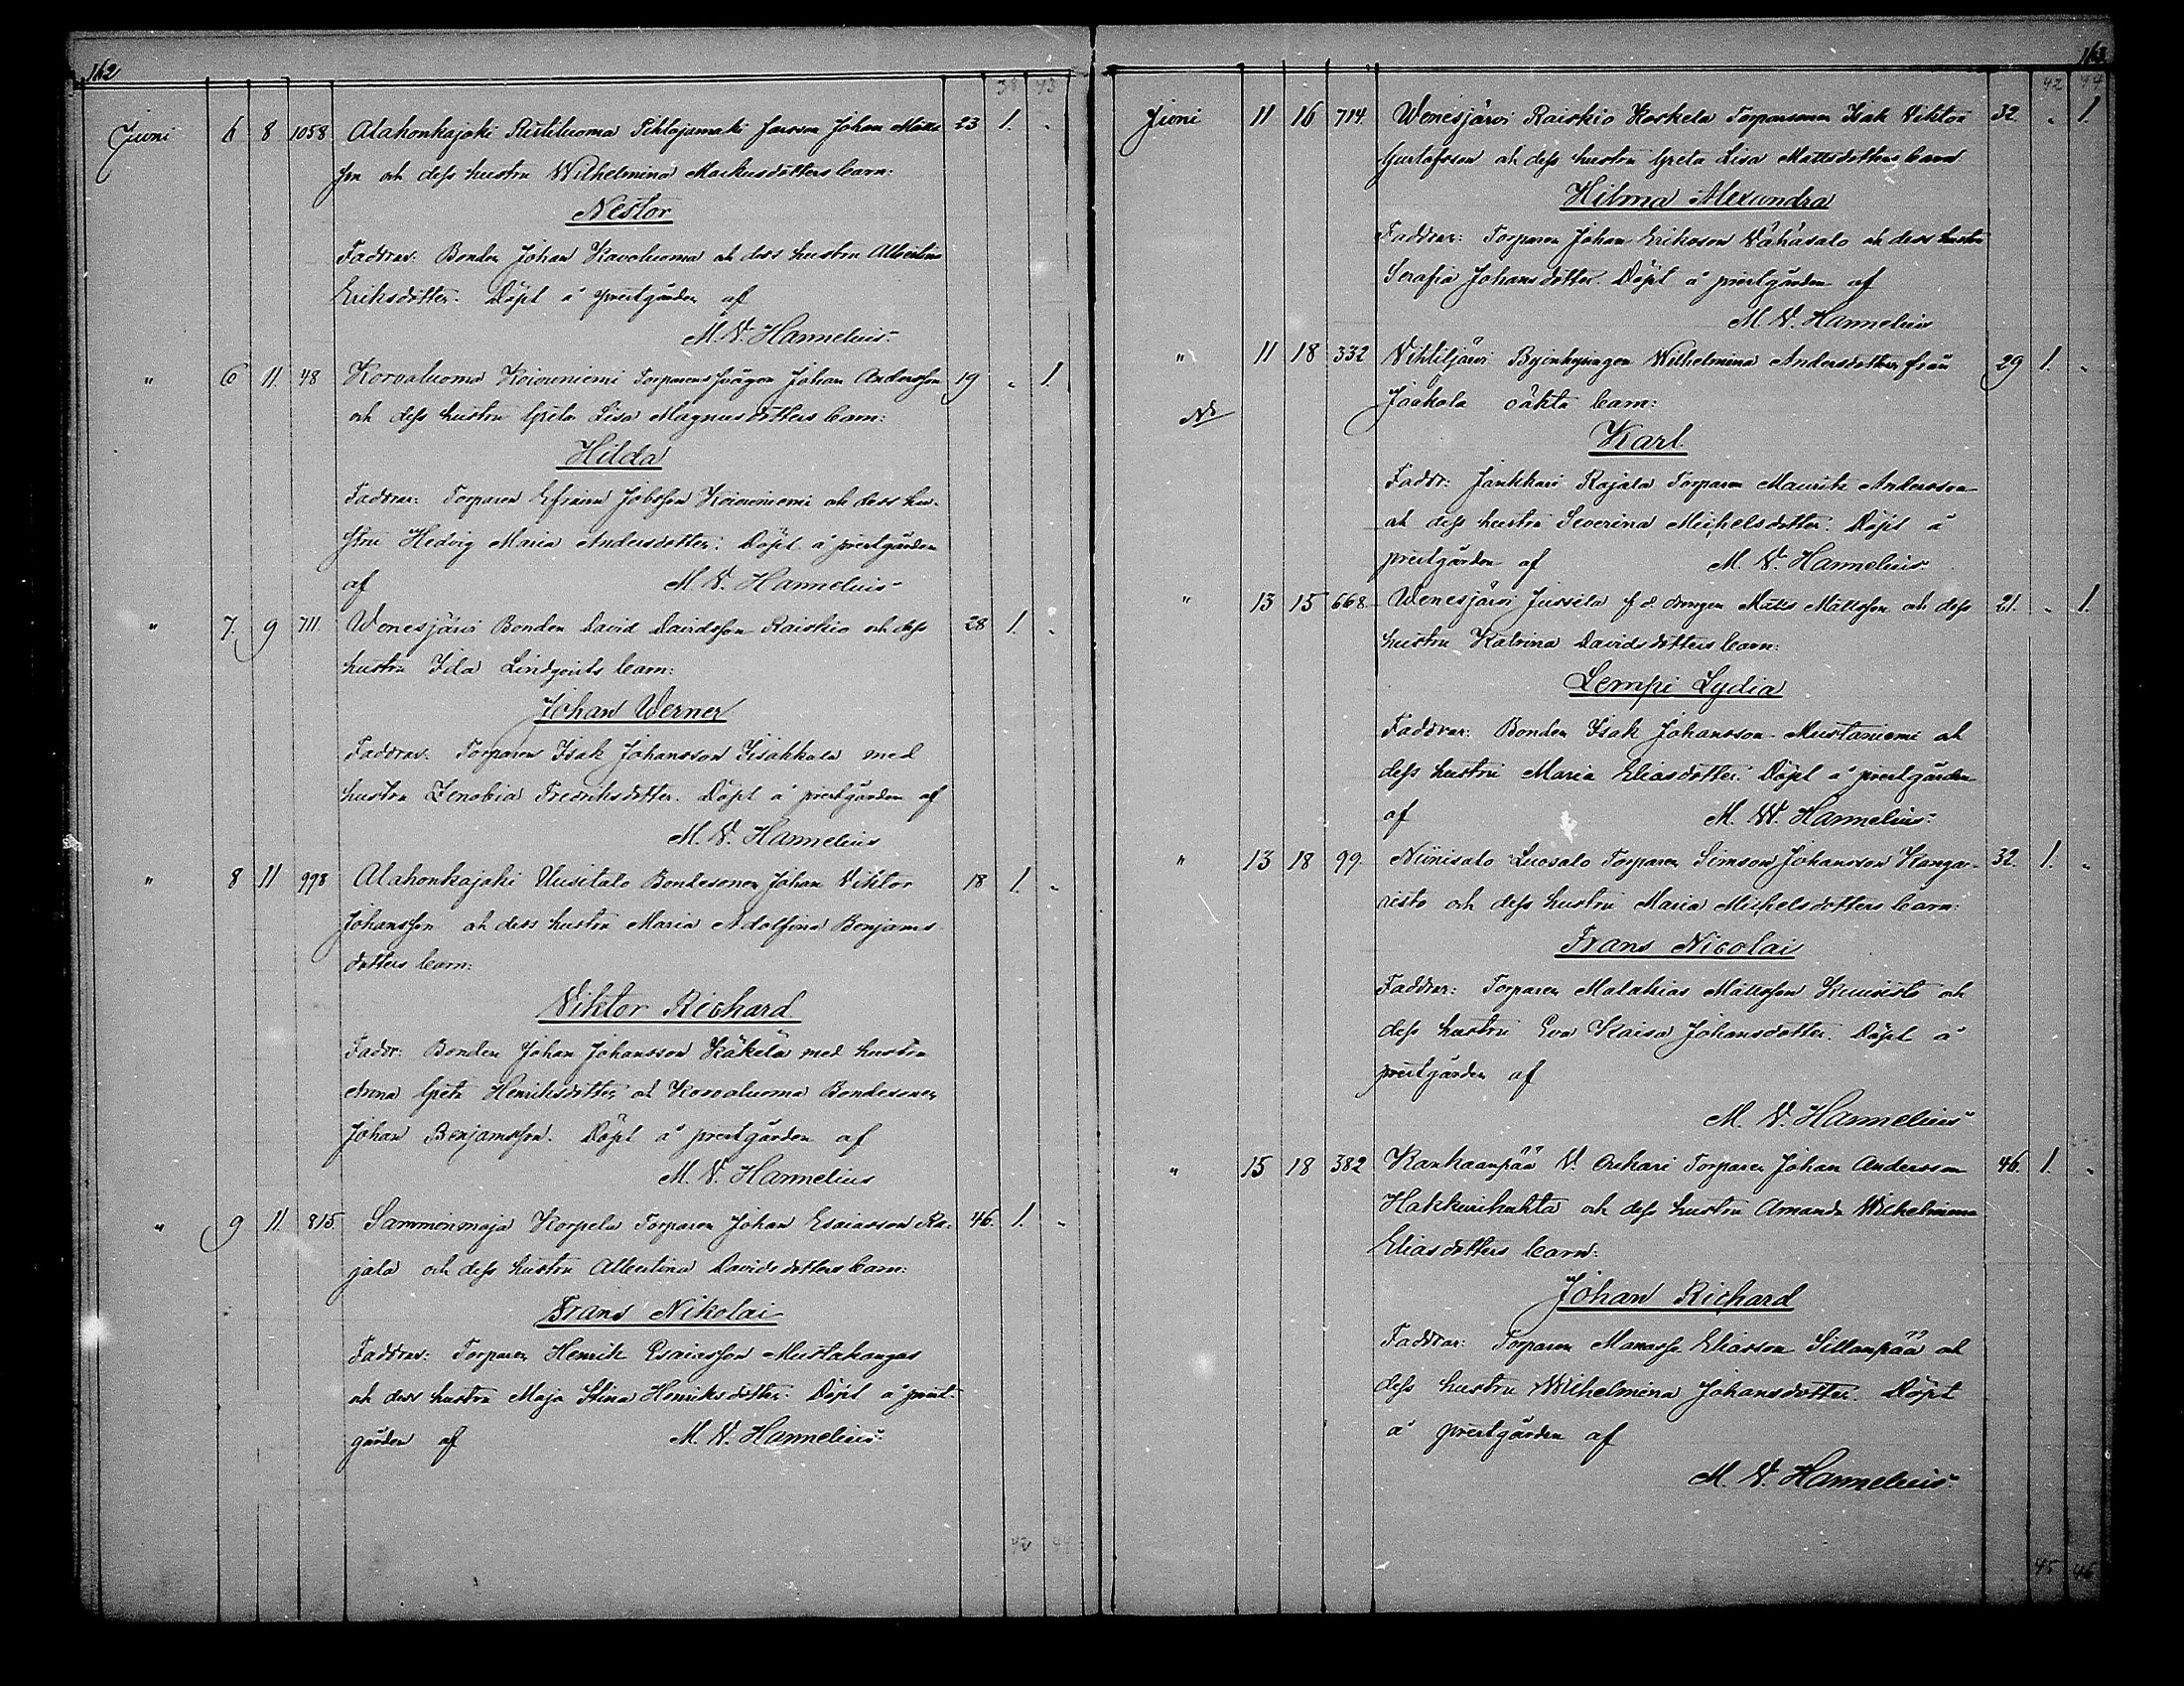 162
38 43
Juni 6 8 1058 Alahonkajoki Ristiluoma Pihlajamaki Jnrson Johan Matts 23 1. "
son och dess hustru Wilhelmina Markusdotters barn:
Nestor
Faddrar: Bonden Johan Kavoluoma och dess hustru Albertina
Eriksdotter. Döpt å prestgården af
M. V. Hannelius
" 6 11. 48 Korvaluoma Koivuniemi Torparens svågen Johan Andersson 19 " 1.
och dess hustru Greta Lisa Magnusdotters barn:
Hilda
Faddrar: Torparen Efraim Jobsson Koivuniemi och dess hu-
stru Hedvig Maria Andersdotter. Döpt å prestgården
af M. V. Hannelius
" 7. 9 711. Wenesjärvi Bonden David Davidsson Raiskio och dess 28 1. "
hustru Ida Lindqvists barn:
Johan Werner
Faddrar: Torparen Isak Johansson Iisakkala med
hustru Zenobia Fredriksdotter. Döpt å prestgården af
M. V. Hannelius
" 8 11 998 Alahonkajoki Uusitalo Bondesonen Johan Viktor 18 1. "
Johansson och dess hustru Maria Adolfina Benjams
dotters barn:
Viktor Richard
Faddr: Bonden Johan Johansson Käkelä med hustru
Anna Greta Henriksdotter och Korvaluoma Bondesonen
Johan Benjamsson. Döpt å prestgården af
M. V. Hannelius
" 9 11. 815 Samminmaja Korpela Torparen Johan Esaiasson Ra- 46. 1. "
jala och dess hustru Albertina Davidsdotters barn:
Frans Nikolai
Faddrar: Torparen Henrik Esaiasson Mustakangas
och dess hustru Maja Stina Henriksdotter. Döpt å prest-
gården af M. V. Hannelius
42 44
163
42 44
Juni 11 16 714 Wenesjärvi Raiskio Koskela Torparsonen Isak Viktor 32. " 1.
Gustafsson och dess hustru Greta Lisa Mattsdotters barn
Hilma Alexandra
Faddrar: Torparen Johan Eriksson Vähäsalo och dess hustru
Serafia Johansdotter. Döpt å prestgården af
M. V. Hannelius
" 11 18 332 Vihtiljärvi Byinhysingen Wilhelmina Andersdotter från 29 1. "
Jaakola oäkta barn:
Karl
Faddr: Jankkari Rajala Torparen Mauritz Andersson
och dess hustru Severina Michelsdotter. Döpt å
prestgården af M. V. Hannelius
" 13 15 668 Wenesjärvi Jussila f. d. drengen Matts Mattsson och dess 21. " 1.
hustru Katrina Davidsdotters barn:
Lempi Lydia
Faddrar: Bonden Isak Johansson Mustaniemi och
dess hustru Maria Eliasdotter. Döpt å prestgården
af M. W. Hannelius
" 13 18 99. Niinisalo Luosalo Torparen Simson Johansson Kangas- 32. 1. "
risto och dess hustru Maria Michelsdotters barn:
Frans Nicolai
Faddrar: Torparen Malakias Mattsson Kuusisto och
dess hustru Eva Kaisa Johansdotter. Döpt å
prestgården af
M. V. Hannelius
" 15 18 382 Kankaanpää V. Orhari Torparen Johan Andersson 46. 1. "
Hakkurihuhta och dess hustru Amanda Wilhelmina
Eliasdotters barn:
Johan Richard
Faddrar: Torparen Manasse Eliasson Sillanpää och
dess hustru Wilhelmina Johansdotter. Döpt
å prestgården af
M. V. Hannelius
45 46